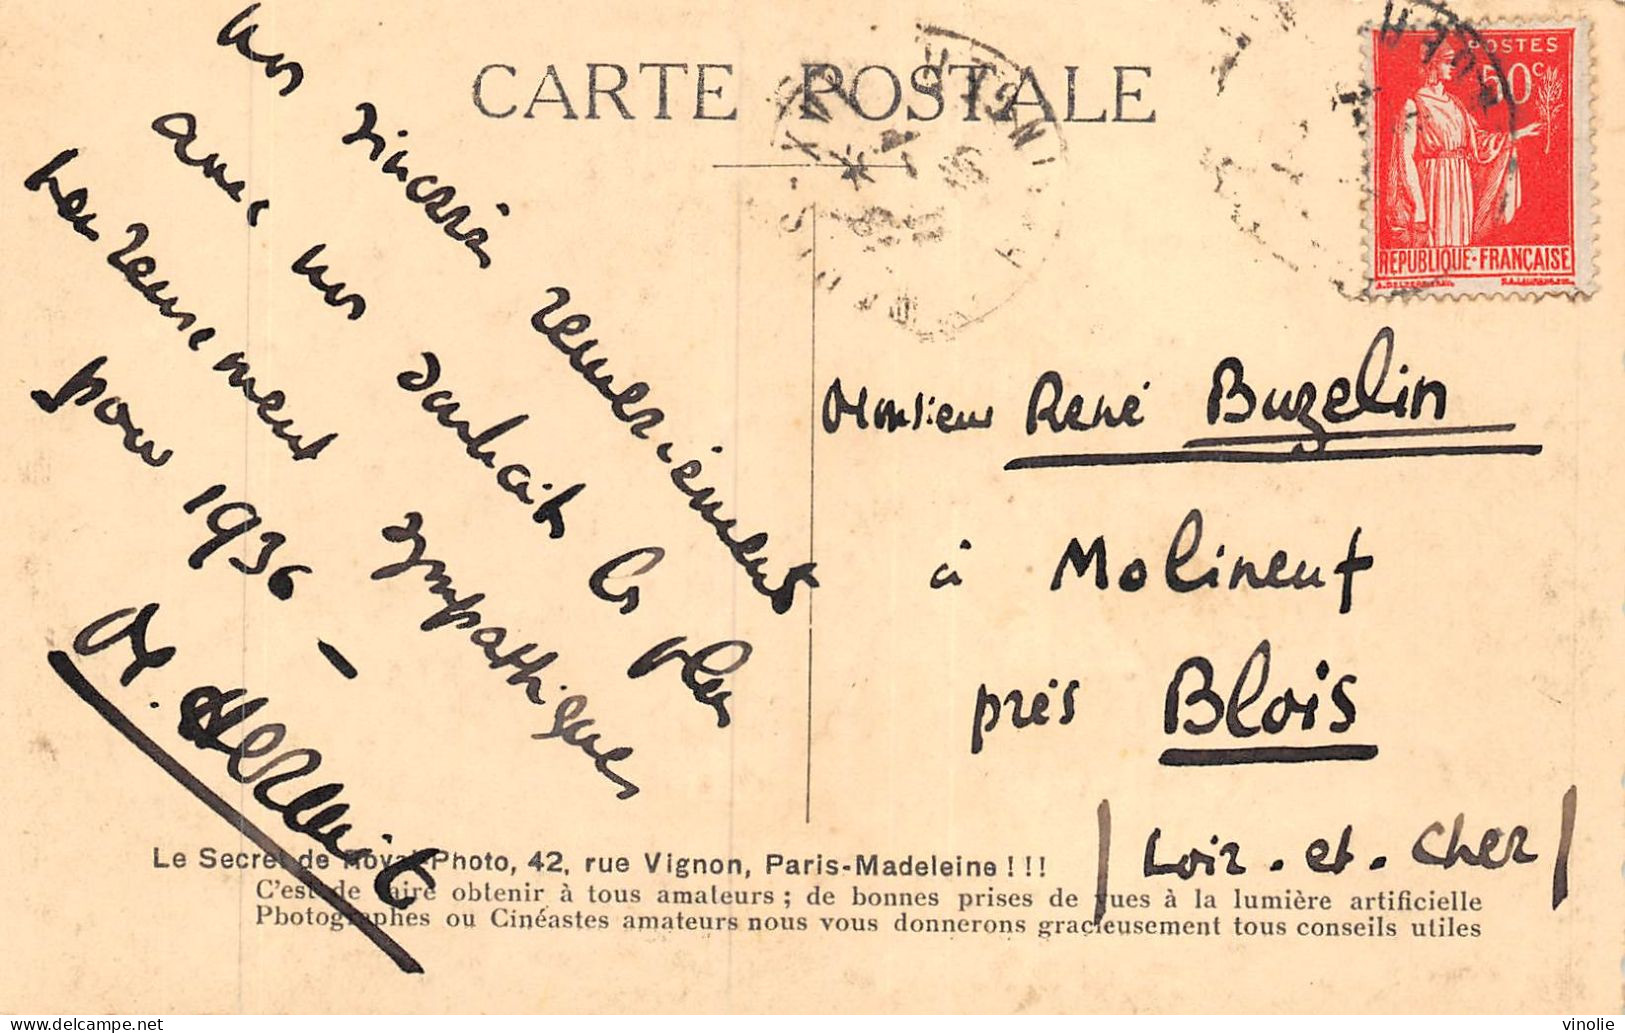 CARTE POSTALE
POSTES
50c
REPUBLIQUE-FRANÇAISE
nos sincères remerciements
avec nos souhaits les plus
heureusement sympathiques
pour 1936 -
M. Hermit
Monsieur René Buzelin
à Molineuf
près Blois
(Loir-et-Cher)
Le Secret de Royal-Photo, 42, rue Vignon, Paris-Madeleine !!!
C'est de faire obtenir à tous amateurs ; de bonnes prises de vues à la lumière artificielle
Photographes ou Cinéastes amateurs nous vous donnerons gracieusement tous conseils utiles
delcampe.net
vinolie